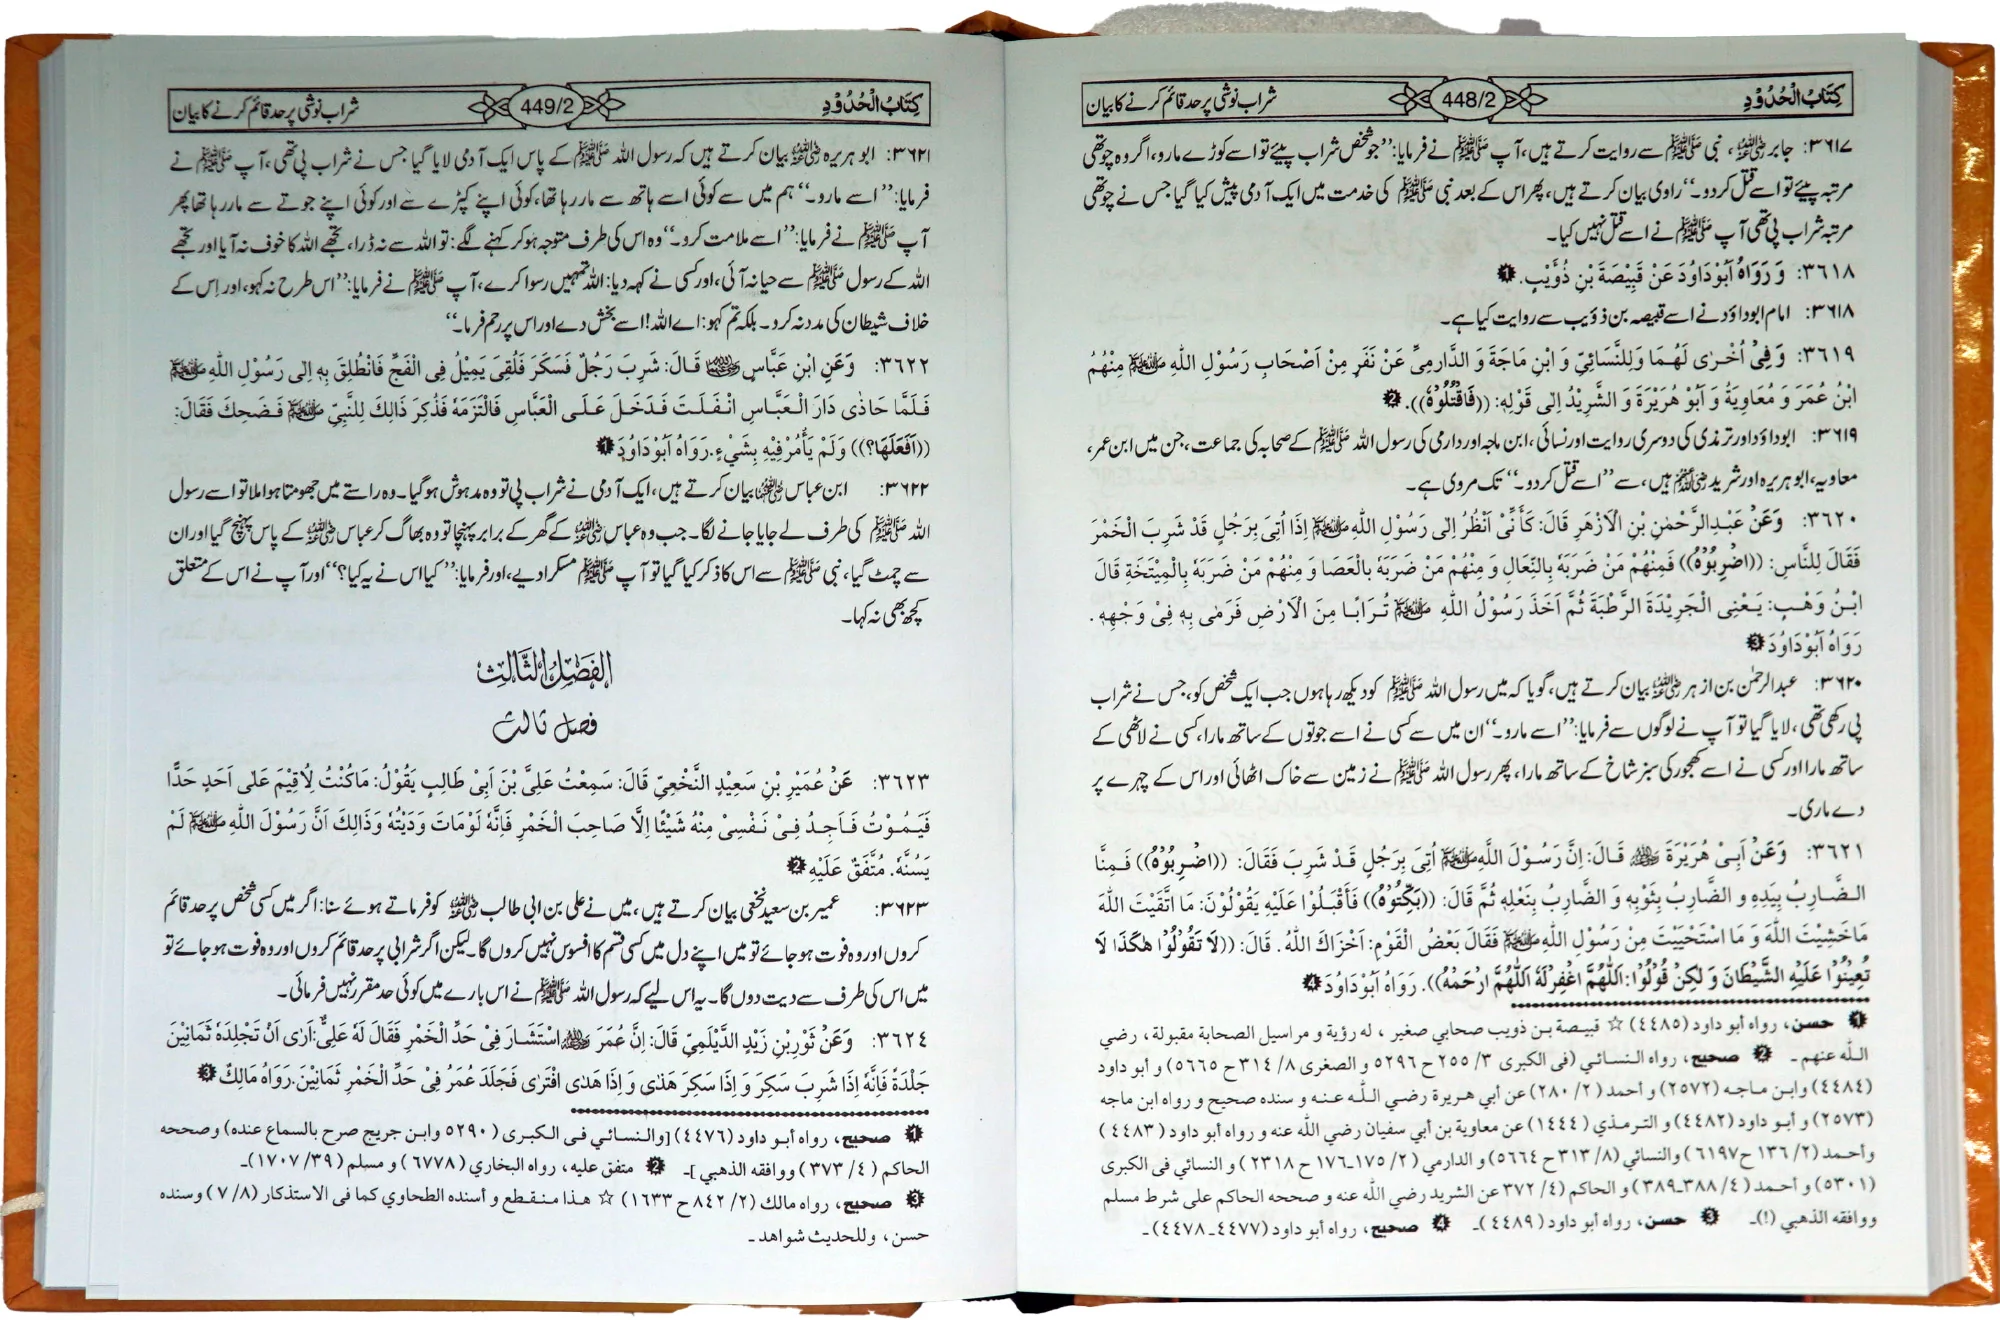 كِتَابُ الْحُدُوْدِ 448/2 شراب نوشی پر حد قائم کرنے کا بیان
۳۶۱۷: جابر رضی اللہ عنہ، نبی ﷺ سے روایت کرتے ہیں، آپ ﷺ نے فرمایا: ’’جو شخص شراب پیئے تو اسے کوڑے مارو، اگر وہ چوتھی
مرتبہ پیئے تو اسے قتل کر دو۔‘‘ راوی بیان کرتے ہیں، پھر اس کے بعد نبی ﷺ کی خدمت میں ایک آدمی پیش کیا گیا جس نے چوتھی
مرتبہ شراب پی تھی آپ ﷺ نے اسے قتل نہیں کیا۔
٣٦١٨: وَ رَوَاهُ اَبُوْدَاوُدَ عَنْ قَبِيْصَةَ بْنِ ذُؤَيْبٍ. ❶
۳۶۱۸: امام ابوداؤد نے اسے قبیصہ بن ذؤیب سے روایت کیا ہے۔
٣٦١٩: وَفِيْ اُخْرٰى لَهُمَا وَلِلنَّسَائِيِّ وَ ابْنِ مَاجَةَ وَ الدَّارِمِيِّ عَنْ نَفَرٍ مِنْ اَصْحَابِ رَسُوْلِ اللّٰهِ ﷺ مِنْهُمُ
ابْنُ عُمَرَ وَ مُعَاوِيَةُ وَ اَبُوْ هُرَيْرَةَ وَ الشَّرِيْدُ اِلٰى قَوْلِهٖ: ((فَاقْتُلُوْهُ)). ❷
۳۶۱۹: ابوداؤد اور ترمذی کی دوسری روایت اور نسائی، ابن ماجہ اور دارمی کی رسول اللہ ﷺ کے صحابہ کی جماعت، جن میں ابن عمر،
معاویہ، ابو ہریرہ اور شرید رضی اللہ عنہم ہیں، سے ’’اسے قتل کر دو۔‘‘ تک مروی ہے۔
٣٦٢٠: وَعَنْ عَبْدِالرَّحْمٰنِ بْنِ الْاَزْهَرِ قَالَ: كَأَنِّيْ اَنْظُرُ اِلٰى رَسُوْلِ اللّٰهِ ﷺ اِذَا اُتِيَ بِرَجُلٍ قَدْ شَرِبَ الْخَمْرَ
فَقَالَ لِلنَّاسِ: ((اضْرِبُوْهُ)) فَمِنْهُمْ مَنْ ضَرَبَهٗ بِالنِّعَالِ وَ مِنْهُمْ مَنْ ضَرَبَهٗ بِالْعَصَا وَ مِنْهُمْ مَنْ ضَرَبَهٗ بِالْمِيْتَخَةِ قَالَ
ابْنُ وَهْبٍ: يَعْنِى الْجَرِيْدَةَ الرَّطْبَةَ ثُمَّ اَخَذَ رَسُوْلُ اللّٰهِ ﷺ تُرَابًا مِنَ الْاَرْضِ فَرَمٰى بِهٖ فِيْ وَجْهِهٖ.
رَوَاهُ اَبُوْدَاوُدَ ❸
۳۶۲۰: عبدالرحمٰن بن ازہر رضی اللہ عنہ بیان کرتے ہیں، گویا کہ میں رسول اللہ ﷺ کو دیکھ رہا ہوں جب ایک شخص کو، جس نے شراب
پی رکھی تھی، لایا گیا تو آپ نے لوگوں سے فرمایا: ’’اسے مارو۔‘‘ ان میں سے کسی نے اسے جوتوں کے ساتھ مارا، کسی نے لاٹھی کے
ساتھ مارا اور کسی نے اسے کھجور کی سبز شاخ کے ساتھ مارا، پھر رسول اللہ ﷺ نے زمین سے خاک اٹھائی اور اس کے چہرے پر
دے ماری۔
٣٦٢١: وَعَنْ اَبِيْ هُرَيْرَةَ رضی اللہ عنہ قَالَ: اِنَّ رَسُوْلَ اللّٰهِ ﷺ اُتِيَ بِرَجُلٍ قَدْ شَرِبَ فَقَالَ: ((اضْرِبُوْهُ)) فَمِنَّا
الضَّارِبُ بِيَدِهٖ وَ الضَّارِبُ بِثَوْبِهٖ وَ الضَّارِبُ بِنَعْلِهٖ ثُمَّ قَالَ: ((بَكِّتُوْهُ)) فَأَقْبَلُوْا عَلَيْهِ يَقُوْلُوْنَ: مَا اتَّقَيْتَ اللّٰهَ
مَاخَشِيْتَ اللّٰهَ وَ مَا اسْتَحْيَيْتَ مِنْ رَسُوْلِ اللّٰهِ ﷺ فَقَالَ بَعْضُ الْقَوْمِ: اَخْزَاكَ اللّٰهُ. قَالَ: ((لَا تَقُوْلُوْا هٰكَذَا لَا
تُعِيْنُوْا عَلَيْهِ الشَّيْطَانَ وَ لٰكِنْ قُوْلُوْا: اَللّٰهُمَّ اغْفِرْلَهٗ اَللّٰهُمَّ ارْحَمْهُ)). رَوَاهُ اَبُوْدَاوُدَ ❹
❶ حسن، رواه أبو داود (٤٤٨٥) ☆ قبيصة بن ذويب صحابي صغير، له رؤية و مراسيل الصحابة مقبولة، رضي
اللّٰه عنهم۔ ❷ صحيح، رواه النسائي (فى الكبرى ٣/ ٢٥٥ ح ٥٢٩٦ و الصغرى ٨/ ٣١٤ ح ٥٦٦٥) و أبو داود
(٤٤٨٤) وابن ماجه (٢٥٧٢) و أحمد (٢/ ٢٨٠) عن أبي هريرة رضي اللّٰه عنه و سنده صحيح و رواه ابن ماجه
(٢٥٧٣) و أبو داود (٤٤٨٢) و الترمذي (١٤٤٤) عن معاوية بن أبي سفيان رضي الله عنه و رواه أبو داود (٤٤٨٣)
وأحمد (٢/ ١٣٦ ح ٦١٩٧) والنسائي (٨/ ٣١٣ ح ٥٦٦٤) و الدارمي (٢/ ١٧٥-١٧٦ ح ٢٣١٨) و النسائي فى الكبرى
(٥٣٠١) و أحمد (٤/ ٣٨٨-٣٨٩) و الحاكم (٤/ ٣٧٢ عن الشريد رضي الله عنه و صححه الحاكم على شرط مسلم
ووافقه الذهبي (!)۔ ❸ حسن، رواه أبو داود (٤٤٨٩)۔ ❹ صحيح، رواه أبو داود (٤٤٧٧-٤٤٧٨)۔
كِتَابُ الْحُدُوْدِ 449/2 شراب نوشی پر حد قائم کرنے کا بیان
۳۶۲۱: ابو ہریرہ رضی اللہ عنہ بیان کرتے ہیں کہ رسول اللہ ﷺ کے پاس ایک آدمی لایا گیا جس نے شراب پی تھی، آپ ﷺ نے
فرمایا: ’’اسے مارو۔‘‘ ہم میں سے کوئی اسے ہاتھ سے مار رہا تھا، کوئی اپنے کپڑے سے اور کوئی اپنے جوتے سے مار رہا تھا پھر
آپ ﷺ نے فرمایا: ’’اسے ملامت کرو۔‘‘ وہ اس کی طرف متوجہ ہو کر کہنے لگے: تو اللہ سے نہ ڈرا، تجھے اللہ کا خوف نہ آیا اور تجھے
اللہ کے رسول ﷺ سے حیا نہ آئی، اور کسی نے کہہ دیا: اللہ تمہیں رسوا کرے، آپ ﷺ نے فرمایا: ’’اس طرح نہ کہو، اور اس کے
خلاف شیطان کی مدد نہ کرو۔ بلکہ تم کہو: اے اللہ! اسے بخش دے اور اس پر رحم فرما۔‘‘
٣٦٢٢: وَعَنِ ابْنِ عَبَّاسٍ رضی اللہ عنہما قَالَ: شَرِبَ رَجُلٌ فَسَكَرَ فَلُقِيَ يَمِيْلُ فِي الْفَجِّ فَانْطُلِقَ بِهٖ اِلٰى رَسُوْلِ اللّٰهِ ﷺ
فَلَمَّا حَاذٰى دَارَ الْعَبَّاسِ انْفَلَتَ فَدَخَلَ عَلَى الْعَبَّاسِ فَالْتَزَمَهٗ فَذُكِرَ ذَالِكَ لِلنَّبِيِّ ﷺ فَضَحِكَ فَقَالَ:
((اَفَعَلَهَا؟)) وَلَمْ يَأْمُرْ فِيْهِ بِشَيْءٍ. رَوَاهُ اَبُوْدَاوُدَ ❶
۳۶۲۲: ابن عباس رضی اللہ عنہما بیان کرتے ہیں، ایک آدمی نے شراب پی تو وہ مدہوش ہو گیا۔ وہ راستے میں جھومتا ہوا ملا تو اسے رسول
اللہ ﷺ کی طرف لے جایا جانے لگا۔ جب وہ عباس رضی اللہ عنہ کے گھر کے برابر پہنچا تو وہ بھاگ کر عباس رضی اللہ عنہ کے پاس پہنچ گیا اور ان
سے چمٹ گیا، نبی ﷺ سے اس کا ذکر کیا گیا تو آپ ﷺ مسکرا دیے، اور فرمایا: ’’کیا اس نے یہ کیا؟‘‘ اور آپ نے اس کے متعلق
کچھ بھی نہ کہا۔
الفَصْلُ الثَّالِثُ
فصل ثالث
٣٦٢٣: عَنْ عُمَيْرِ بْنِ سَعِيْدٍ النَّخْعِيِّ قَالَ: سَمِعْتُ عَلِيَّ بْنَ اَبِيْ طَالِبٍ يَقُوْلُ: مَاكُنْتُ لِاُقِيْمَ عَلٰى اَحَدٍ حَدًّا
فَيَمُوْتُ فَاَجِدُ فِيْ نَفْسِيْ مِنْهُ شَيْئًا اِلَّا صَاحِبَ الْخَمْرِ فَاِنَّهٗ لَوْمَاتَ وَدَيْتُهٗ وَذَالِكَ اَنَّ رَسُوْلَ اللّٰهِ ﷺ لَمْ
يَسُنَّهٗ. مُتَّفَقٌ عَلَيْهِ ❷
۳۶۲۳: عمیر بن سعید نخعی بیان کرتے ہیں، میں نے علی بن ابی طالب رضی اللہ عنہ کو فرماتے ہوئے سنا: اگر میں کسی شخص پر حد قائم
کروں اور وہ فوت ہو جائے تو میں اپنے دل میں کسی قسم کا افسوس نہیں کروں گا۔ لیکن اگر شرابی پر حد قائم کروں اور وہ فوت ہو جائے تو
میں اس کی طرف سے دیت دوں گا۔ یہ اس لیے کہ رسول اللہ ﷺ نے اس بارے میں کوئی حد مقرر نہیں فرمائی۔
٣٦٢٤: وَعَنْ ثَوْرِبْنِ زَيْدٍ الدَّيْلَمِيِّ قَالَ: اِنَّ عُمَرَ رضی اللہ عنہ اسْتَشَارَ فِيْ حَدِّ الْخَمْرِ فَقَالَ لَهٗ عَلِيٌّ: اَرٰى اَنْ تَجْلِدَهٗ ثَمَانِيْنَ
جَلْدَةً فَاِنَّهٗ اِذَا شَرِبَ سَكِرَ وَ اِذَا سَكِرَ هَذٰى وَ اِذَا هَذٰى افْتَرٰى فَجَلَدَ عُمَرُ فِيْ حَدِّ الْخَمْرِ ثَمَانِيْنَ. رَوَاهُ مَالِكٌ ❸
❶ صحيح، رواه أبو داود (٤٤٧٦) [والنسائي فى الكبرى (٥٢٩٠ وابن جريج صرح بالسماع عنده) وصححه
الحاكم (٤/ ٣٧٣) ووافقه الذهبي]۔ ❷ متفق عليه، رواه البخاري (٦٧٧٨) و مسلم (٣٩/ ١٧٠٧)۔
❸ صحيح، رواه مالك (٢/ ٨٤٢ ح ١٦٣٣) ☆ هذا منقطع و أسنده الطحاوي كما فى الاستذكار (٨/ ٧) وسنده
حسن، وللحديث شواهد۔